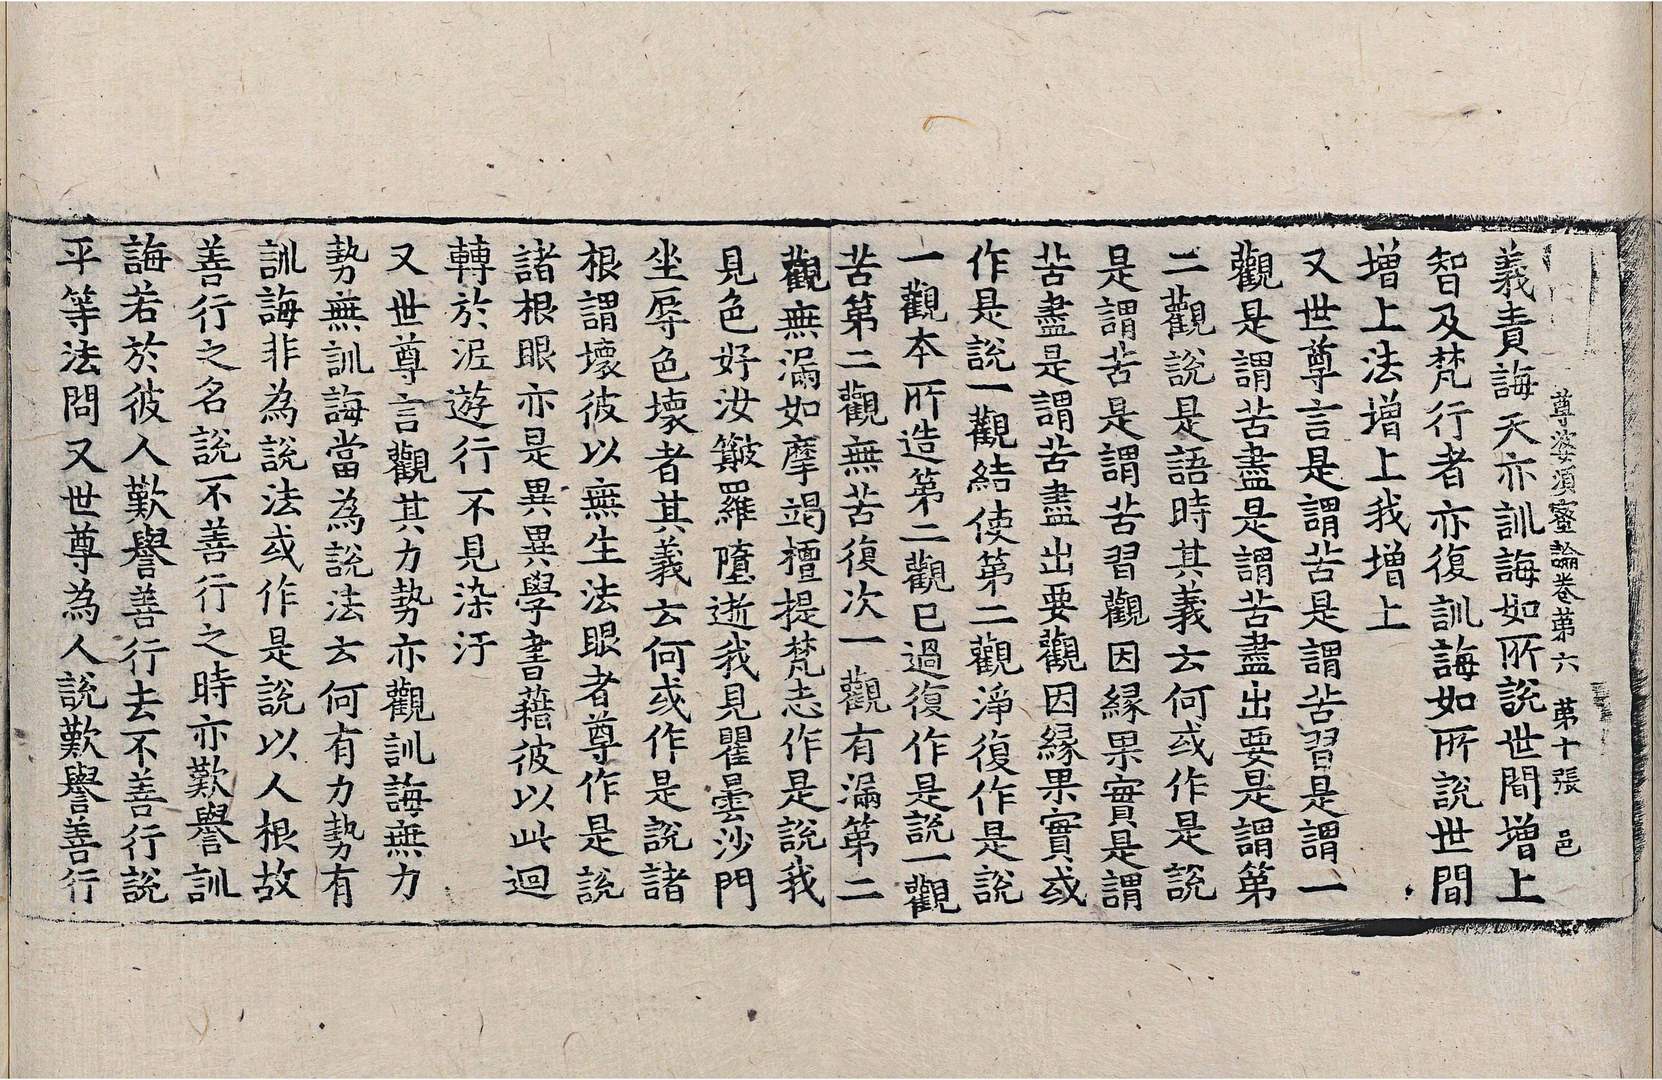 尊婆須蜜論卷第六 第十張 邑
義責誨天亦訓誨如所說世間增上
智及梵行者亦復訓誨如所說世間
增上法增上我增上
又世尊言是謂苦是謂苦習是謂一
觀是謂苦盡是謂苦盡出要是謂第
二觀說是語時其義云何或作是說
是謂苦是謂苦習觀因緣果實是謂
苦盡是謂苦盡出要觀因緣果實或
作是說一觀結使第二觀淨復作是說
一觀本所造第二觀已過復作是說一觀
苦第二觀無苦復次一觀有漏第二
觀無漏如摩竭檀提梵志作是說我
見色好汝簸羅墮逝我見瞿曇沙門
坐辱色壞者其義云何或作是說諸
根謂壞彼以無生法眼者尊作是說
諸根眼亦是異異學書藉彼以此迴
轉於泥遊行不見染汙
又世尊言觀其力勢亦觀訓誨無力
勢無訓誨當為說法云何有力勢有
訓誨非為說法或作是說以人根故
善行之名說不善行之時亦歎譽訓
誨若於彼人歎譽善行去不善行說
平等法問又世尊為人說歎譽善行